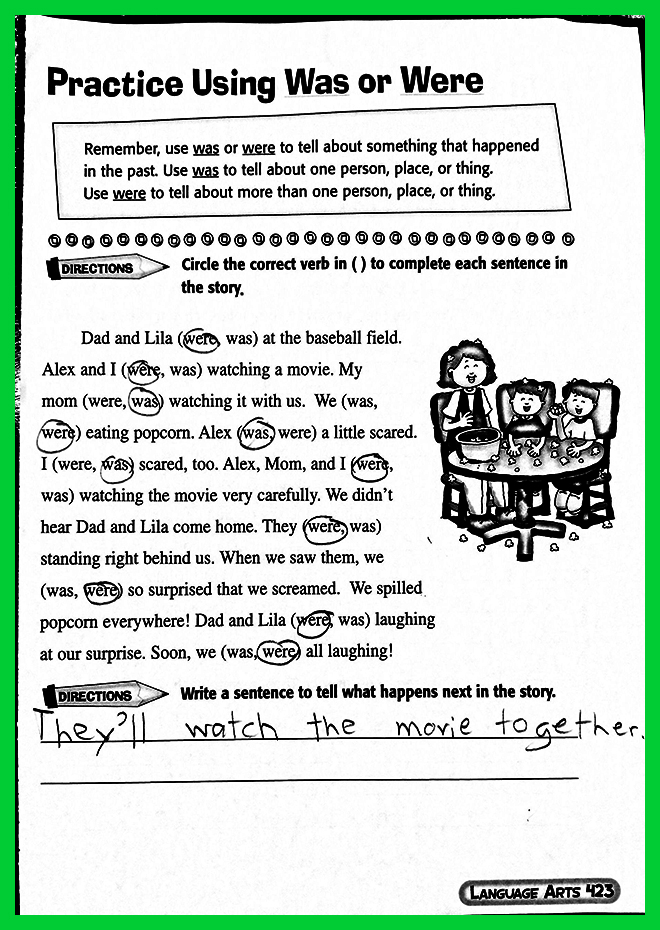 Practice Using Was or Were
Remember, use was or were to tell about something that happened
in the past. Use was to tell about one person, place, or thing.
Use were to tell about more than one person, place, or thing.
DIRECTIONS Circle the correct verb in ( ) to complete each sentence in
the story.
Dad and Lila (were, was) at the baseball field.
Alex and I (were, was) watching a movie. My
mom (were, was) watching it with us. We (was,
were) eating popcorn. Alex (was, were) a little scared.
I (were, was) scared, too. Alex, Mom, and I (were,
was) watching the movie very carefully. We didn't
hear Dad and Lila come home. They (were, was)
standing right behind us. When we saw them, we
(was, were) so surprised that we screamed. We spilled
popcorn everywhere! Dad and Lila (were, was) laughing
at our surprise. Soon, we (was, were) all laughing!
DIRECTIONS Write a sentence to tell what happens next in the story.
They'll watch the movie together.
LANGUAGE ARTS 423